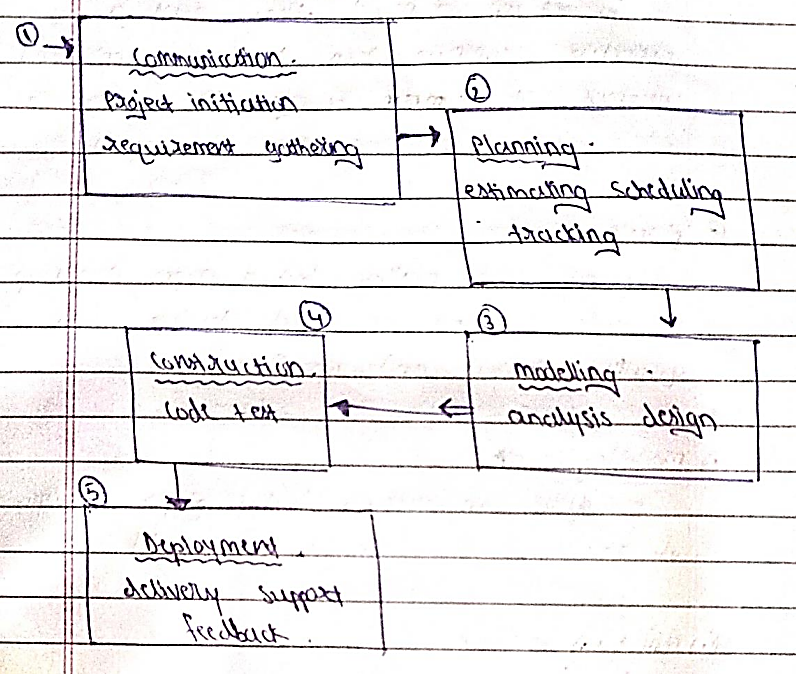 ①
Communication.
Project initiation
requirement gathering
②
Planning.
estimating scheduling
tracking
③
modelling.
analysis design
④
Construction.
code test
⑤
Deployment.
delivery support
feedback.